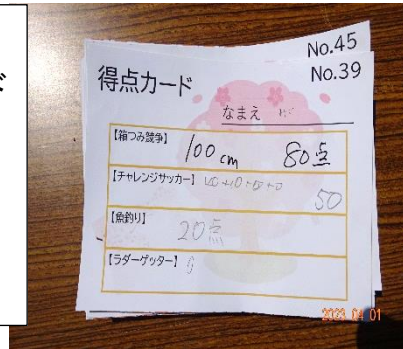 No.45
No.39
得点カード
なまえ
【箱つみ競争】
100cm 80点
【チャレンジサッカー】
50
【魚釣り】
20点
【ラダーゲッター】
2023 04 01